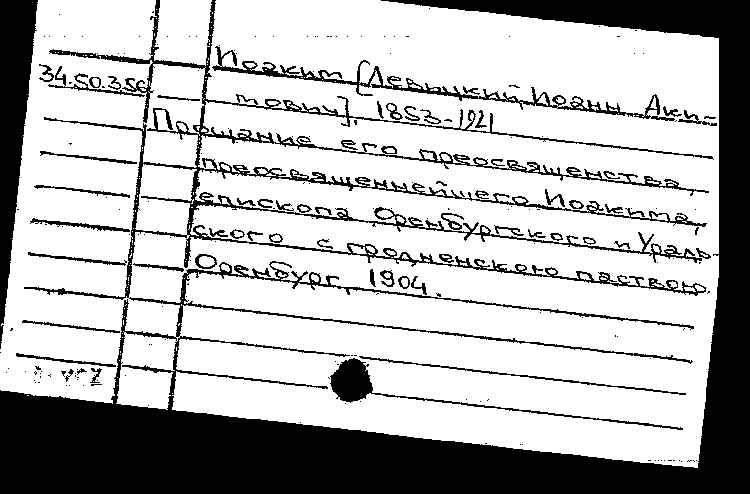 Иоаким [Левицкий, Иоанн Аки-
34.50.350
мович], 1853-1921
Прощание его преосвященства,
преосвященнейшего Иоакима,
епископа Оренбургского и Ураль-
ского с гродненскою паствою.
Оренбург, 1904.